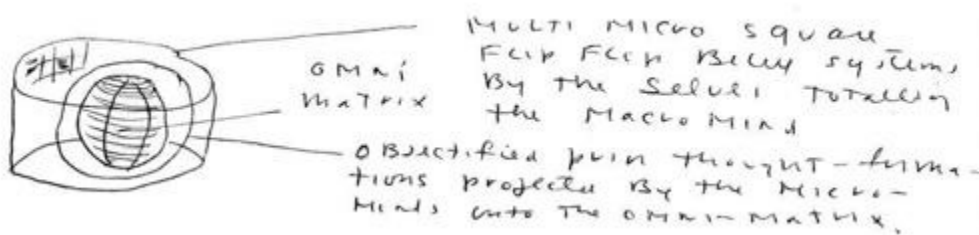 MULTI MICRO SQUARE
FLIP FLIP systems
OMNI
MATRIX
By the Selves Totalling
the MACRO MIND
OBJECTified pure thought-forma-
tions projected By the Micro-
Minds onto The OMNI-MATRIX.